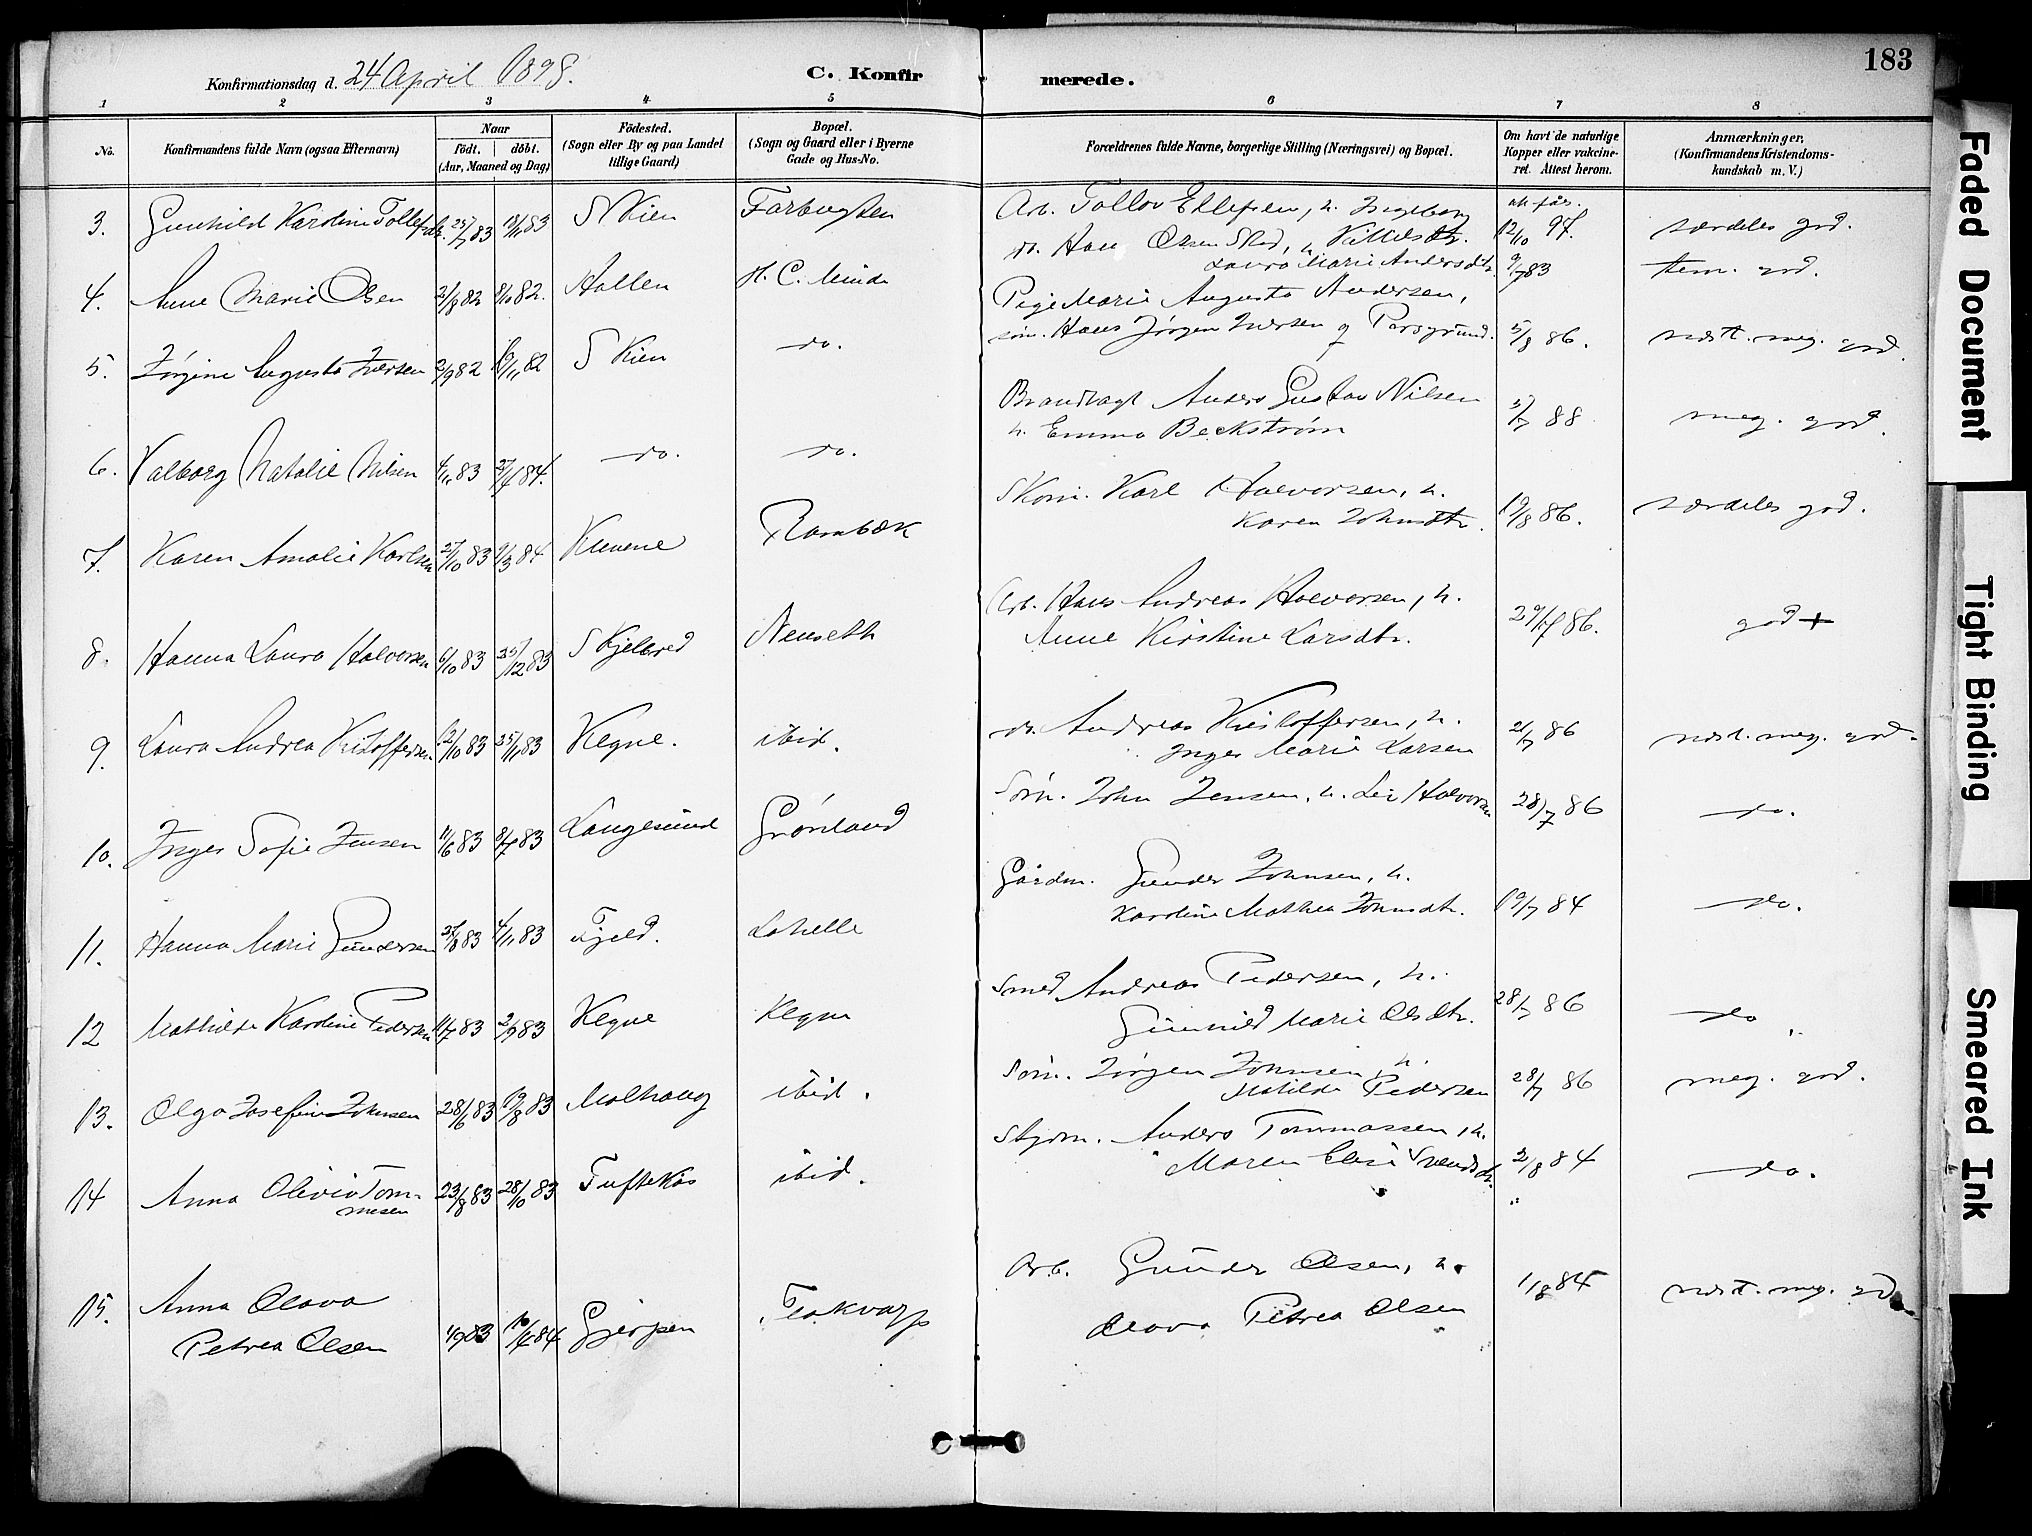 183
Konfirmationsdag d. 24 April 1898.
C. Konfirmerede.
1 2 3 4 5 6 7 8
No.
Konfirmandens fulde Navn (ogsaa Efternavn)
Naar
Födt. döbt.
(Aar, Maaned og Dag)
Födested.
(Sogn eller By og paa Landet
tillige Gaard)
Bopæl.
(Sogn og Gaard eller i Byerne
Gade og Hus-No.
Forældrenes fulde Navne, borgerlige Stilling (Næringsvei) og Bopæl.
Om havt de naturlige
Kopper eller vakcine-
ret. Attest herom.
Anmærkninger,
(Konfirmandens Kristendoms-
kundskab m. V.)
3. Gunhild Karoline Tollefsdtr. 25/7 83 18/11 83 Skien
Arb. Tollov Ellefsen, h. Ingeborg
Kittilsdtr. 12/10 97. særdeles god.
4. Anne Marie Olsen 21/8 82 8/10 82. Hollen H. C. Minde
do. Hans Olsen h.
Laura Marie Andersdtr. 9/7 83 tem. god.
5. Jørgine Augusta Iversen 2/9 82 19/11 82 Skien do.
Pige Marie Augusta Andersen,
søm. Hans Jørgen Iversen af Porsgrund. 5/8 86. næst. meg. god.
6. Valborg Natalie Nilsen 4/11 83 27/4 84. do. do.
Brandvagt Anders Gustav Nilsen
h. Emma Beckstrøm 5/7 88 meg. god.
7. Karen Amalie Karlsen 27/10 83 9/3 84 Klevene Rambæk
Skom. Karl Halvorsen, h.
Karen Johnsdtr. 19/8 86. særdeles god.
8. Hanna Laura Halvorsen 6/10 83 25/12 83 Skjelbred Nenseth
Arb. Hans Andreas Halvorsen, h.
Anne Kirstine Larsdtr. 86. god +
9. Laura Andrea Kristoffersen 12/10 83 25/11 83 Kegne. ibid.
do. Andreas Kristoffersen, h.
Inger Marie Larsen 21/7 86 næst. meg. god.
10. Inger Sofie Jensen 11/6 83 8/7 83 Langesund Grønland
Søm. John Jensen, h. Lei Halvorsen 28/7 86 do.
11. Hanna Marie Gundersen 83 4/11 83 Fjeld. Lahelle
Gårdm. Gunder Johnsen, h.
Karoline Mathea Johnsdtr. 19/7 84 do.
12 Mathilde Karoline Pedersen 11/7 83 2/9 83 Kegne Kegne
Smed Andreas Pedersen, h.
Gunhild Marie Olsdtr. 28/7 86 do
13. Olga Josefine Johnsen 28/6 83 19/8 83 Molhaug ibid.
Søm. Jørgen Johnsen, h.
Matilde Pedersen 28/7 86 meg. god.
14 Anna Olivia Tom-
mesen 23/8 83 28/10 83 Tuftekås ibid.
Stydm. Anders Tommassen, h.
Maren Elise Svendsdtr. 2/8 84 do.
15. Anna Olava
Petrea Olsen 83 84 Gjerpen Flakvarp
Arb. Gunder Olsen, h.
Olava Petrea Olsen 1/8 84 næst. meg. god
Faded Document
Tight Binding
Smeared Ink